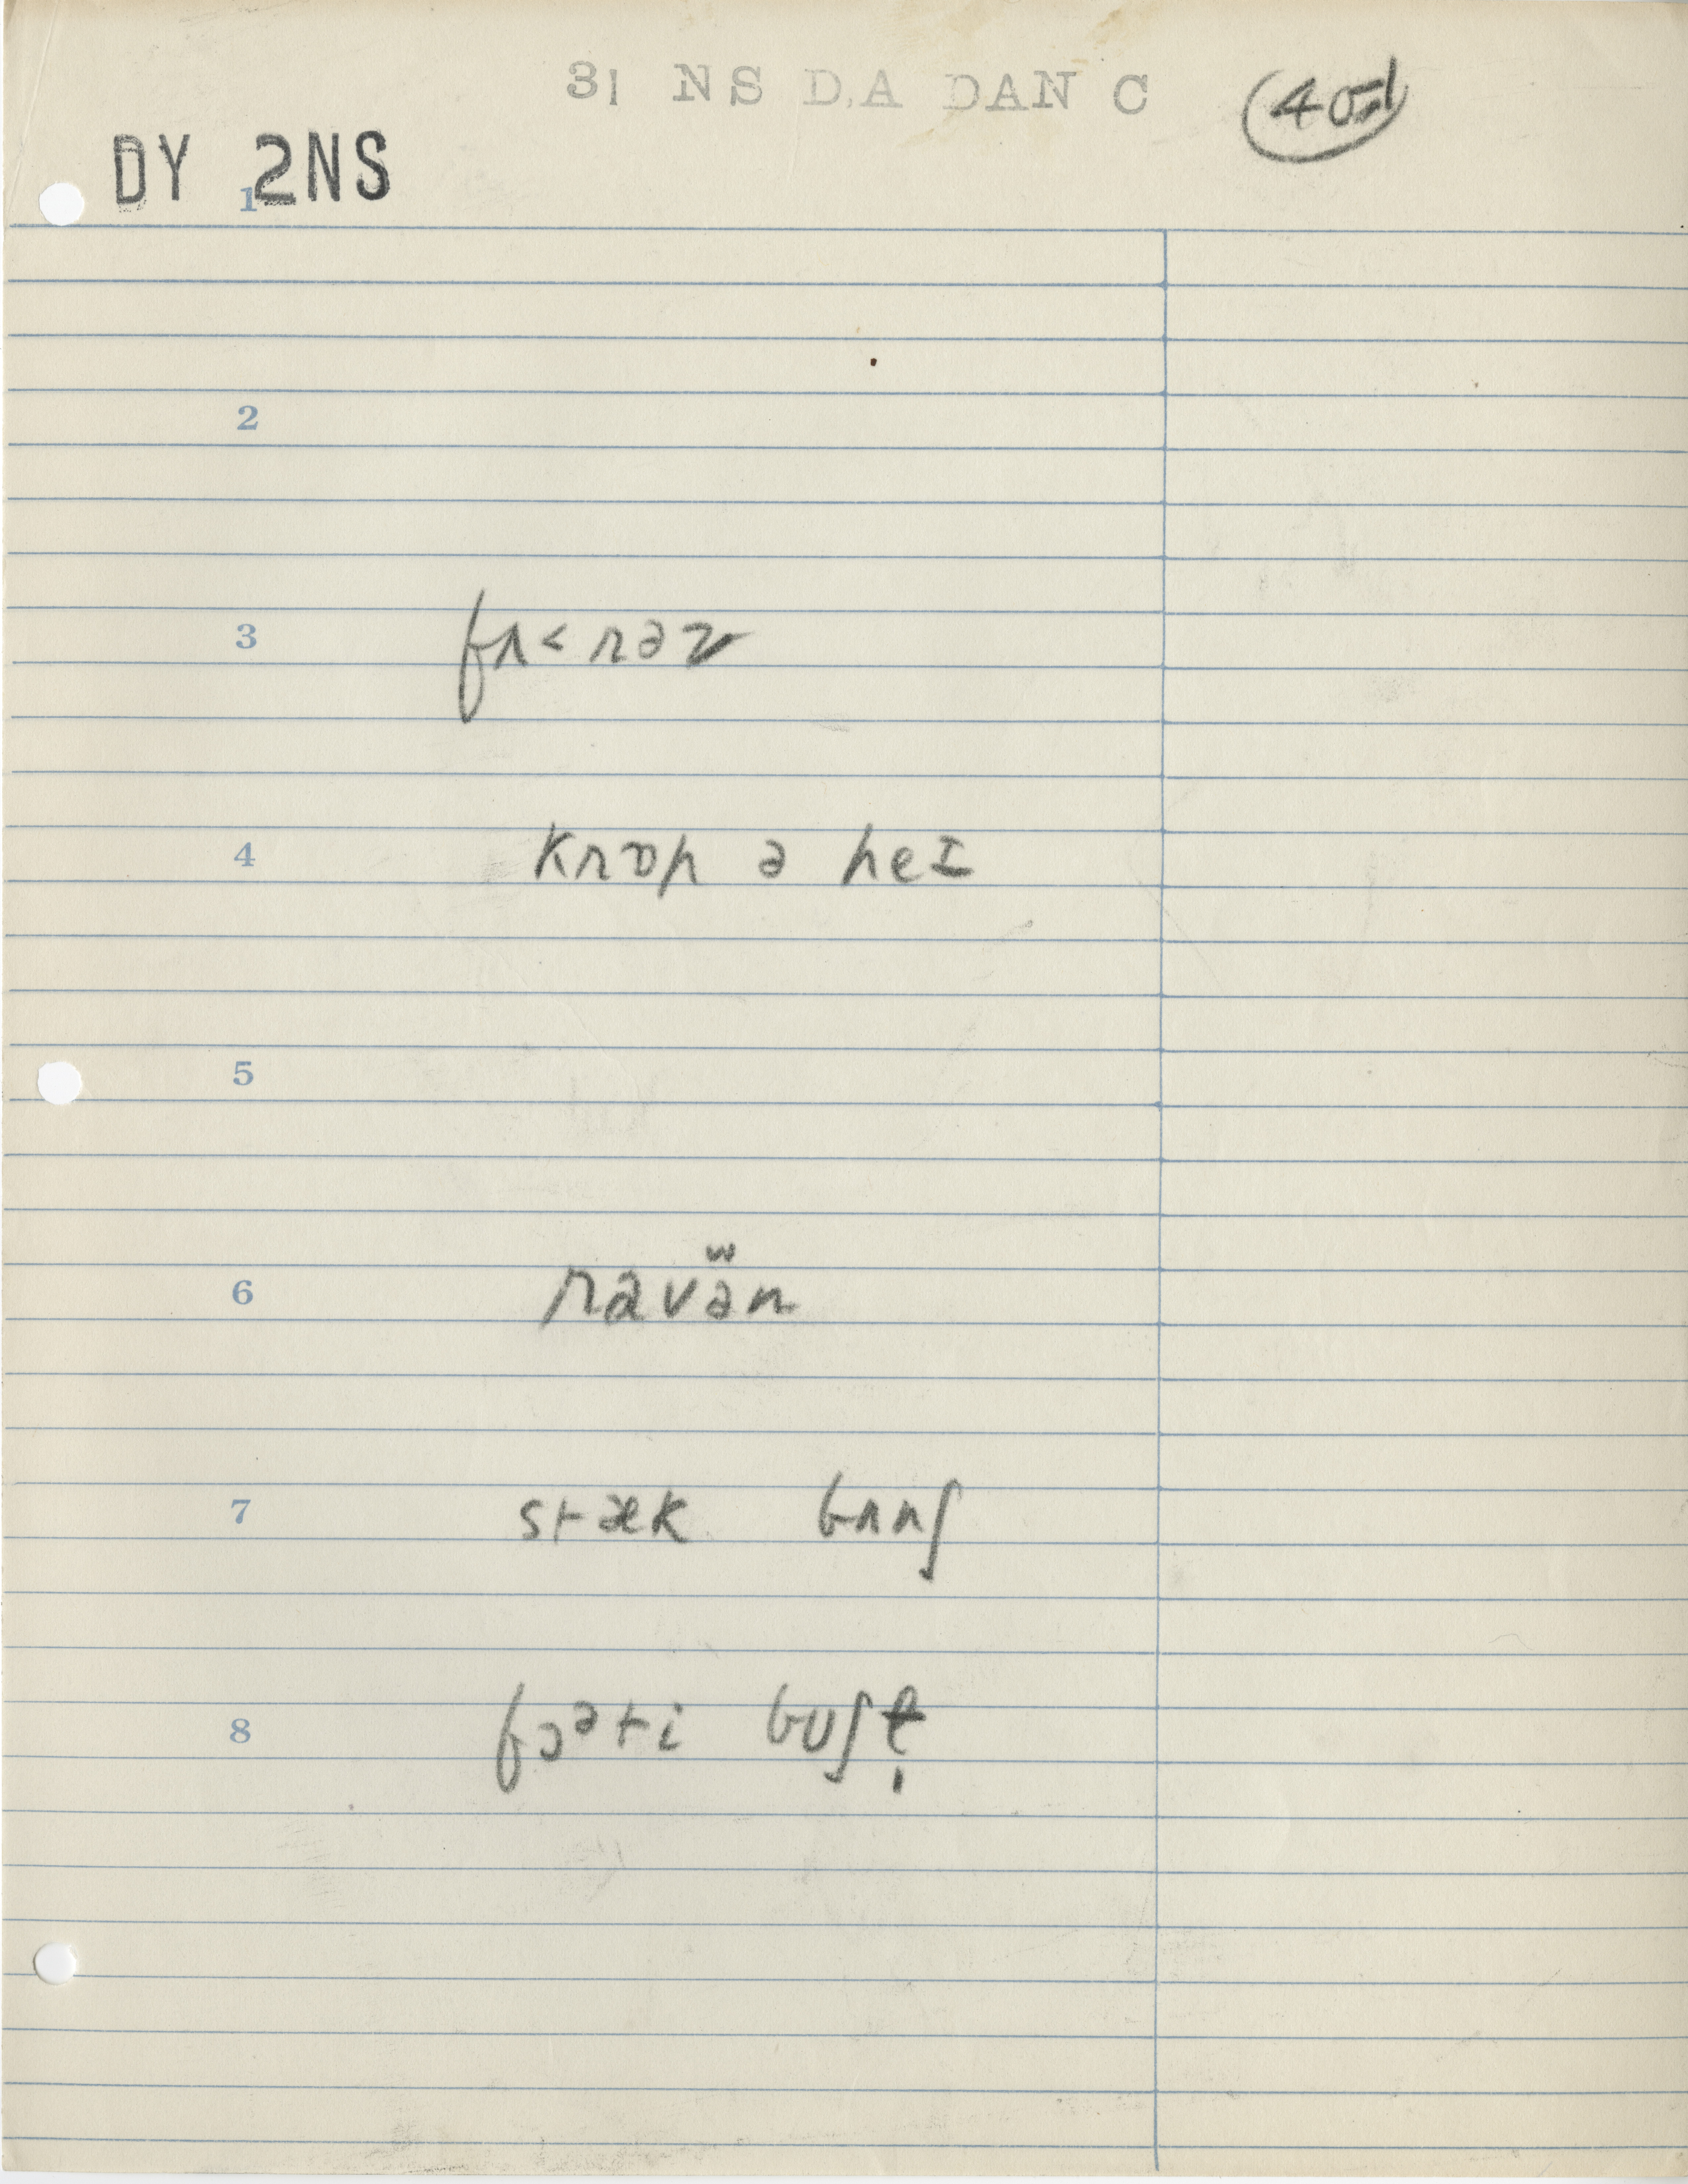 31 NS D.A DAN C
DY 2NS
1
2
3 fʌ<rəz
4 krɒp ə heɪ
5
6 ravän
7 stæk bʌnʃ
8 fɔᵊti buʃ